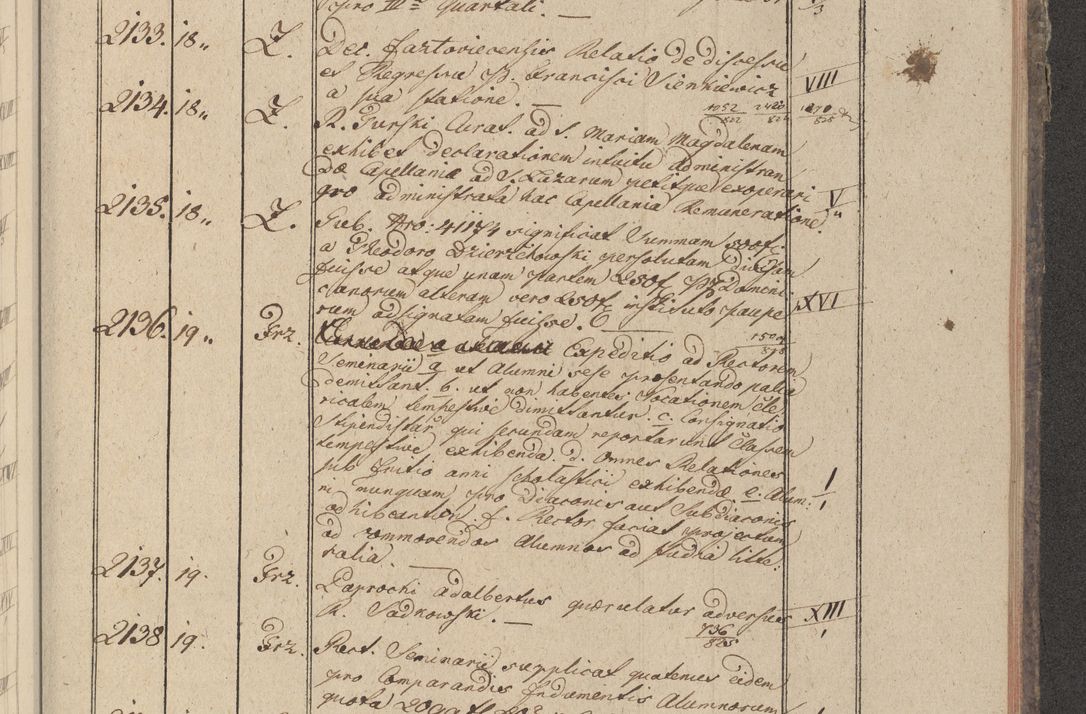 pro III Quartali. —
2133. 18 „ Z. Dec. Jaztoviecensis Relatio de discessu
et Regressu P. Francisci Sienkiewicz VIII
a sua statione. — 1052/822 2480/824 1270/825
2134. 18 „ Z. R. Gurski Curat. ad S. Mariam Magdalenam
exhibet declarationem intuitu administran
dae Capellaniae ad S. Lazarum petitque exoperari V
pro administrata hac Capellania Remuneratione.
2135. 18 „ Z. Gub. Nro: 41174 significat Summam 500 f
a Theodoro Dzierzchowski persolutam
fuisse atque unam partem 250 f Domini
canorum alteram vero 250 f instituto paupe XVI
rum adsignatam fuisse.
2136. 19 „ Grz. Expeditio ad Rectorem
Seminarii a. ut Alumni sese praesentando
demissant. b. ut non habentes Vocationem Cle
ricalem tempestive dimittantur. c. Consignatio
Stipendistar. qui secundam reportarunt Classem
tempestive exhibenda. d. Omnes Relationes
sub Initio anni scholastici exhibendae. e. Alum: 1/1
ni nunquam pro Diaconis aut Subdiaconis
adhibeantur. f. Rector faciat projectum
ad commovendos Alumnos ad studia litte:
ralia. —
2137. 19. Grz. Paprocki Adalbertus quaerulatur adversus XIII
R. Sadkowski. — 736/825
2138 19. Grz. Rect. Seminarii supplicat quatenus eidem
pro Comparandis Indumentis Alumnorum
quota